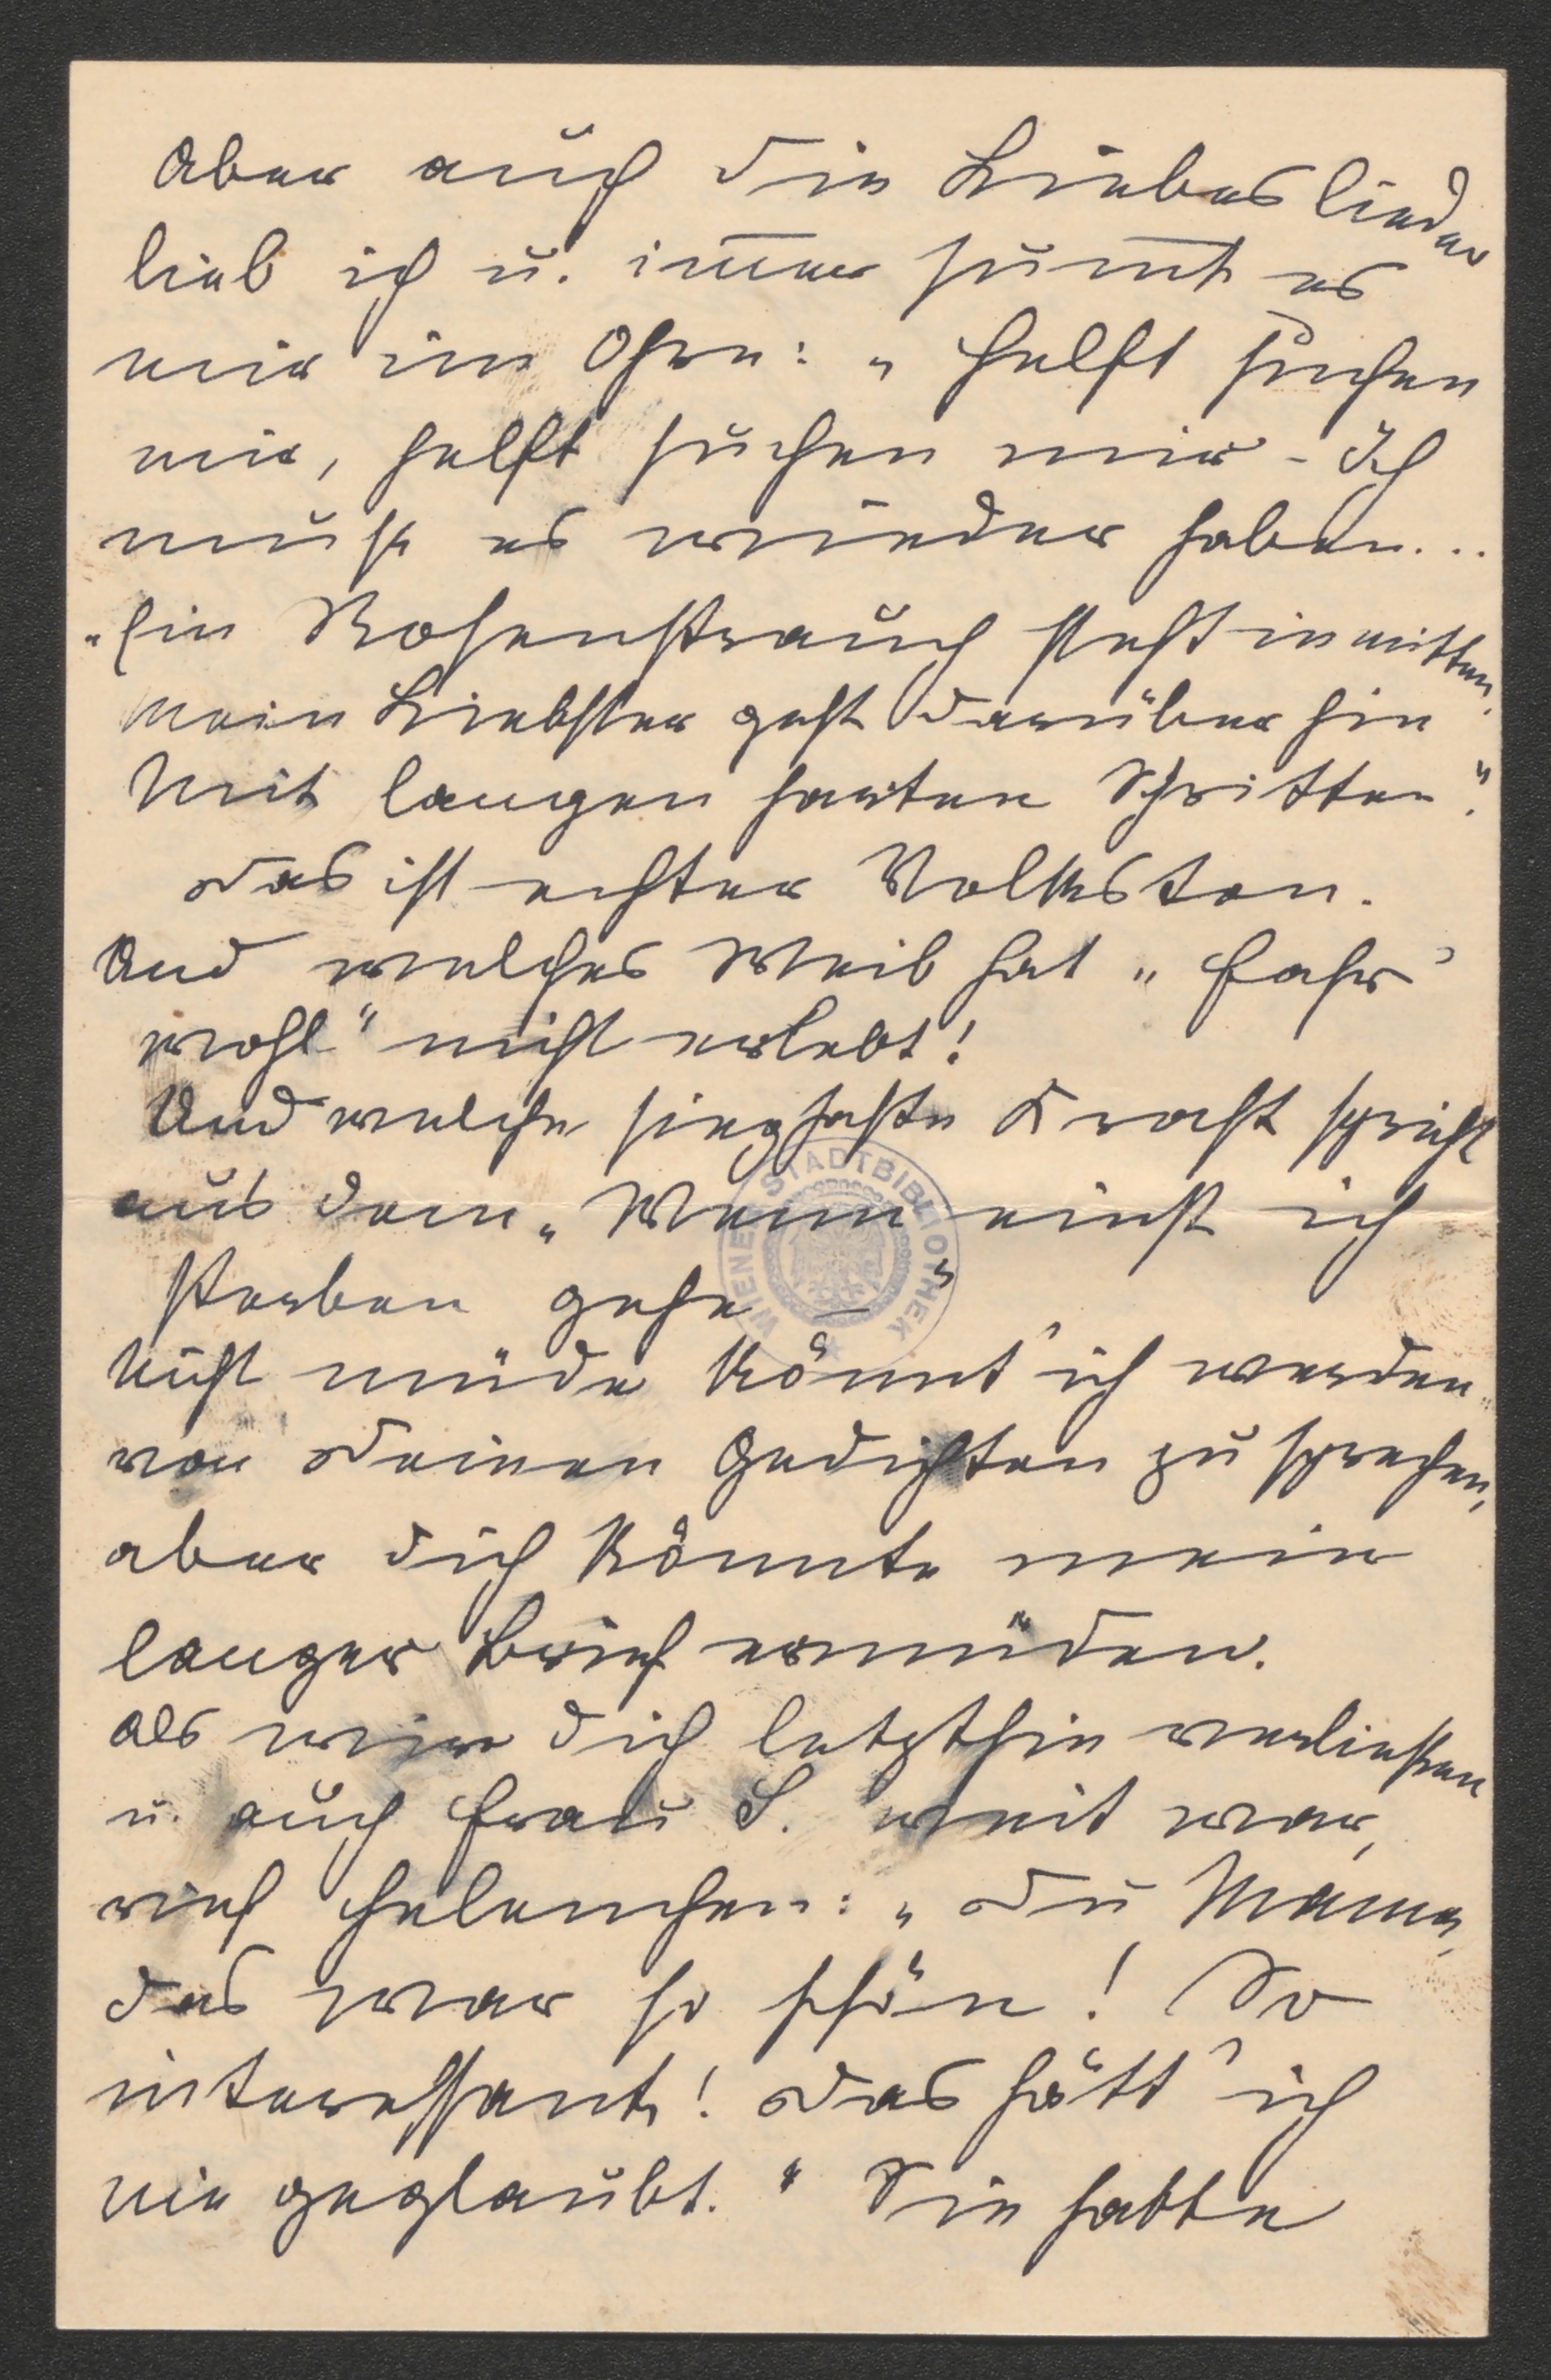 Aber auch die Liebeslieder
lieb ich u. im̅er sum̅t es
mir im Ohre: „Helft suchen
mir, helft suchen mir – Ich
muß es wieder haben...
„Ein Rosenstrauch steht inmitten,
Mein Liebster geht darüber hin
Mit langen harten Schritten“.
Das ist echter Volkston.
Und welches Weib hat „Fahr'
wohl“ nicht erlebt!
Und welche sieghafte Kraft spricht
aus dem „Wenn einst ich
sterben gehe –“
Nicht müde könnt' ich werden
von Deinen Gedichten zu sprechen,
aber dich könnte mein
langer Brief ermüden.
Als wir dich letzthin verließen
u. auch Frau S. weit war,
rief Helenchen: „Du Mama,
das war so schön! So
interessant! Das hätt' ich
nie geglaubt.“ Sie hatte
WIENER STADTBIBLIOTHEK